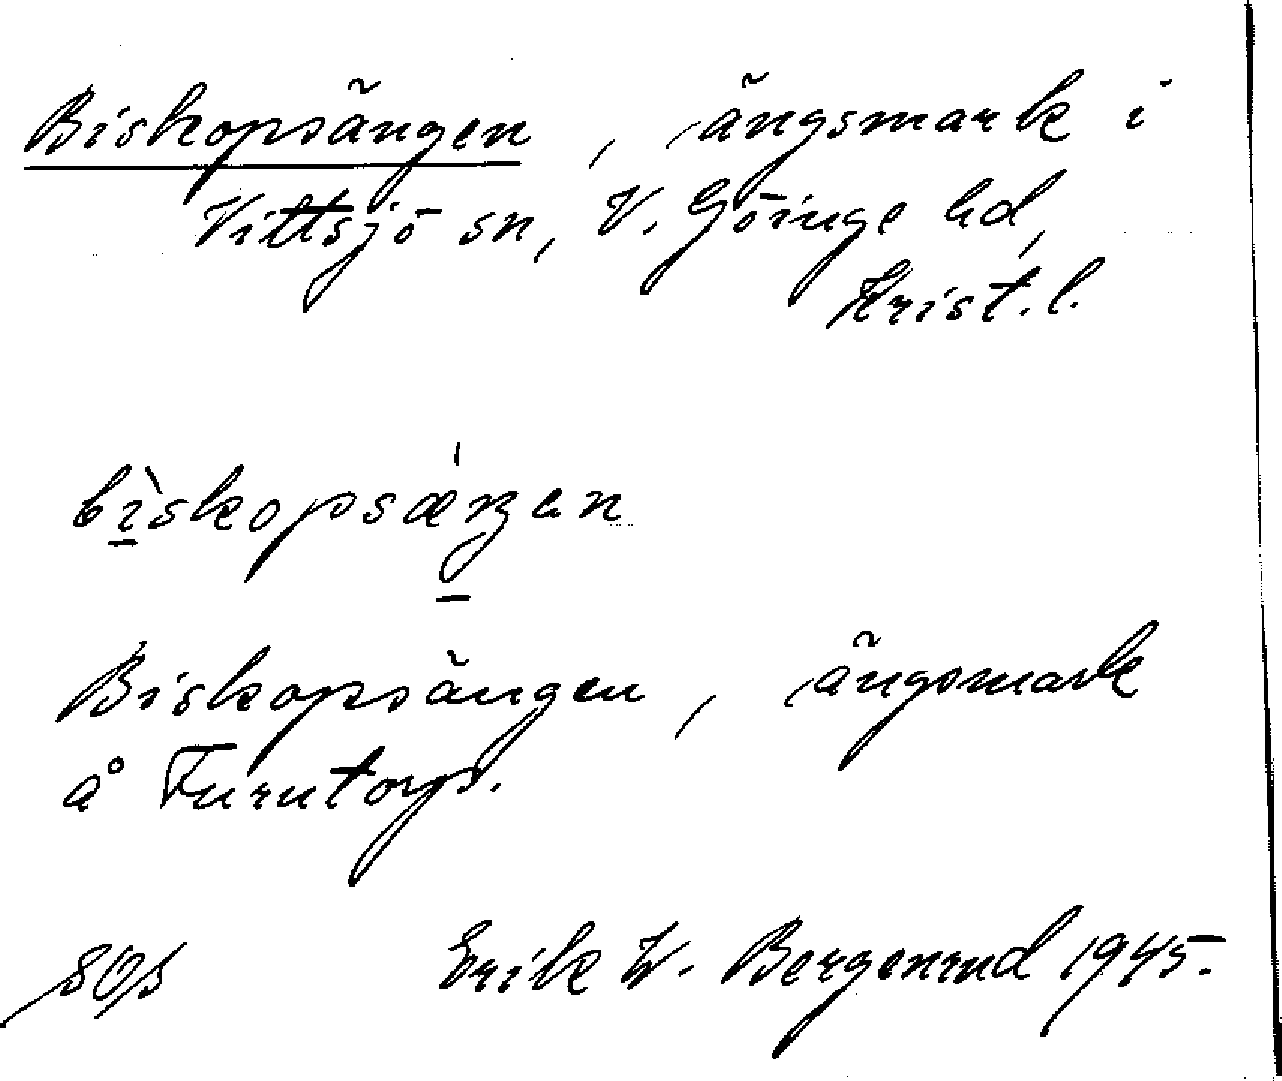 Biskopsängen, ängsmark i
Vittsjö sn, V. Göinge hd,
Krist. l.
Biskopsängen, ängsmark
å Furutorps.
Erik W. Bergenrud 1945.